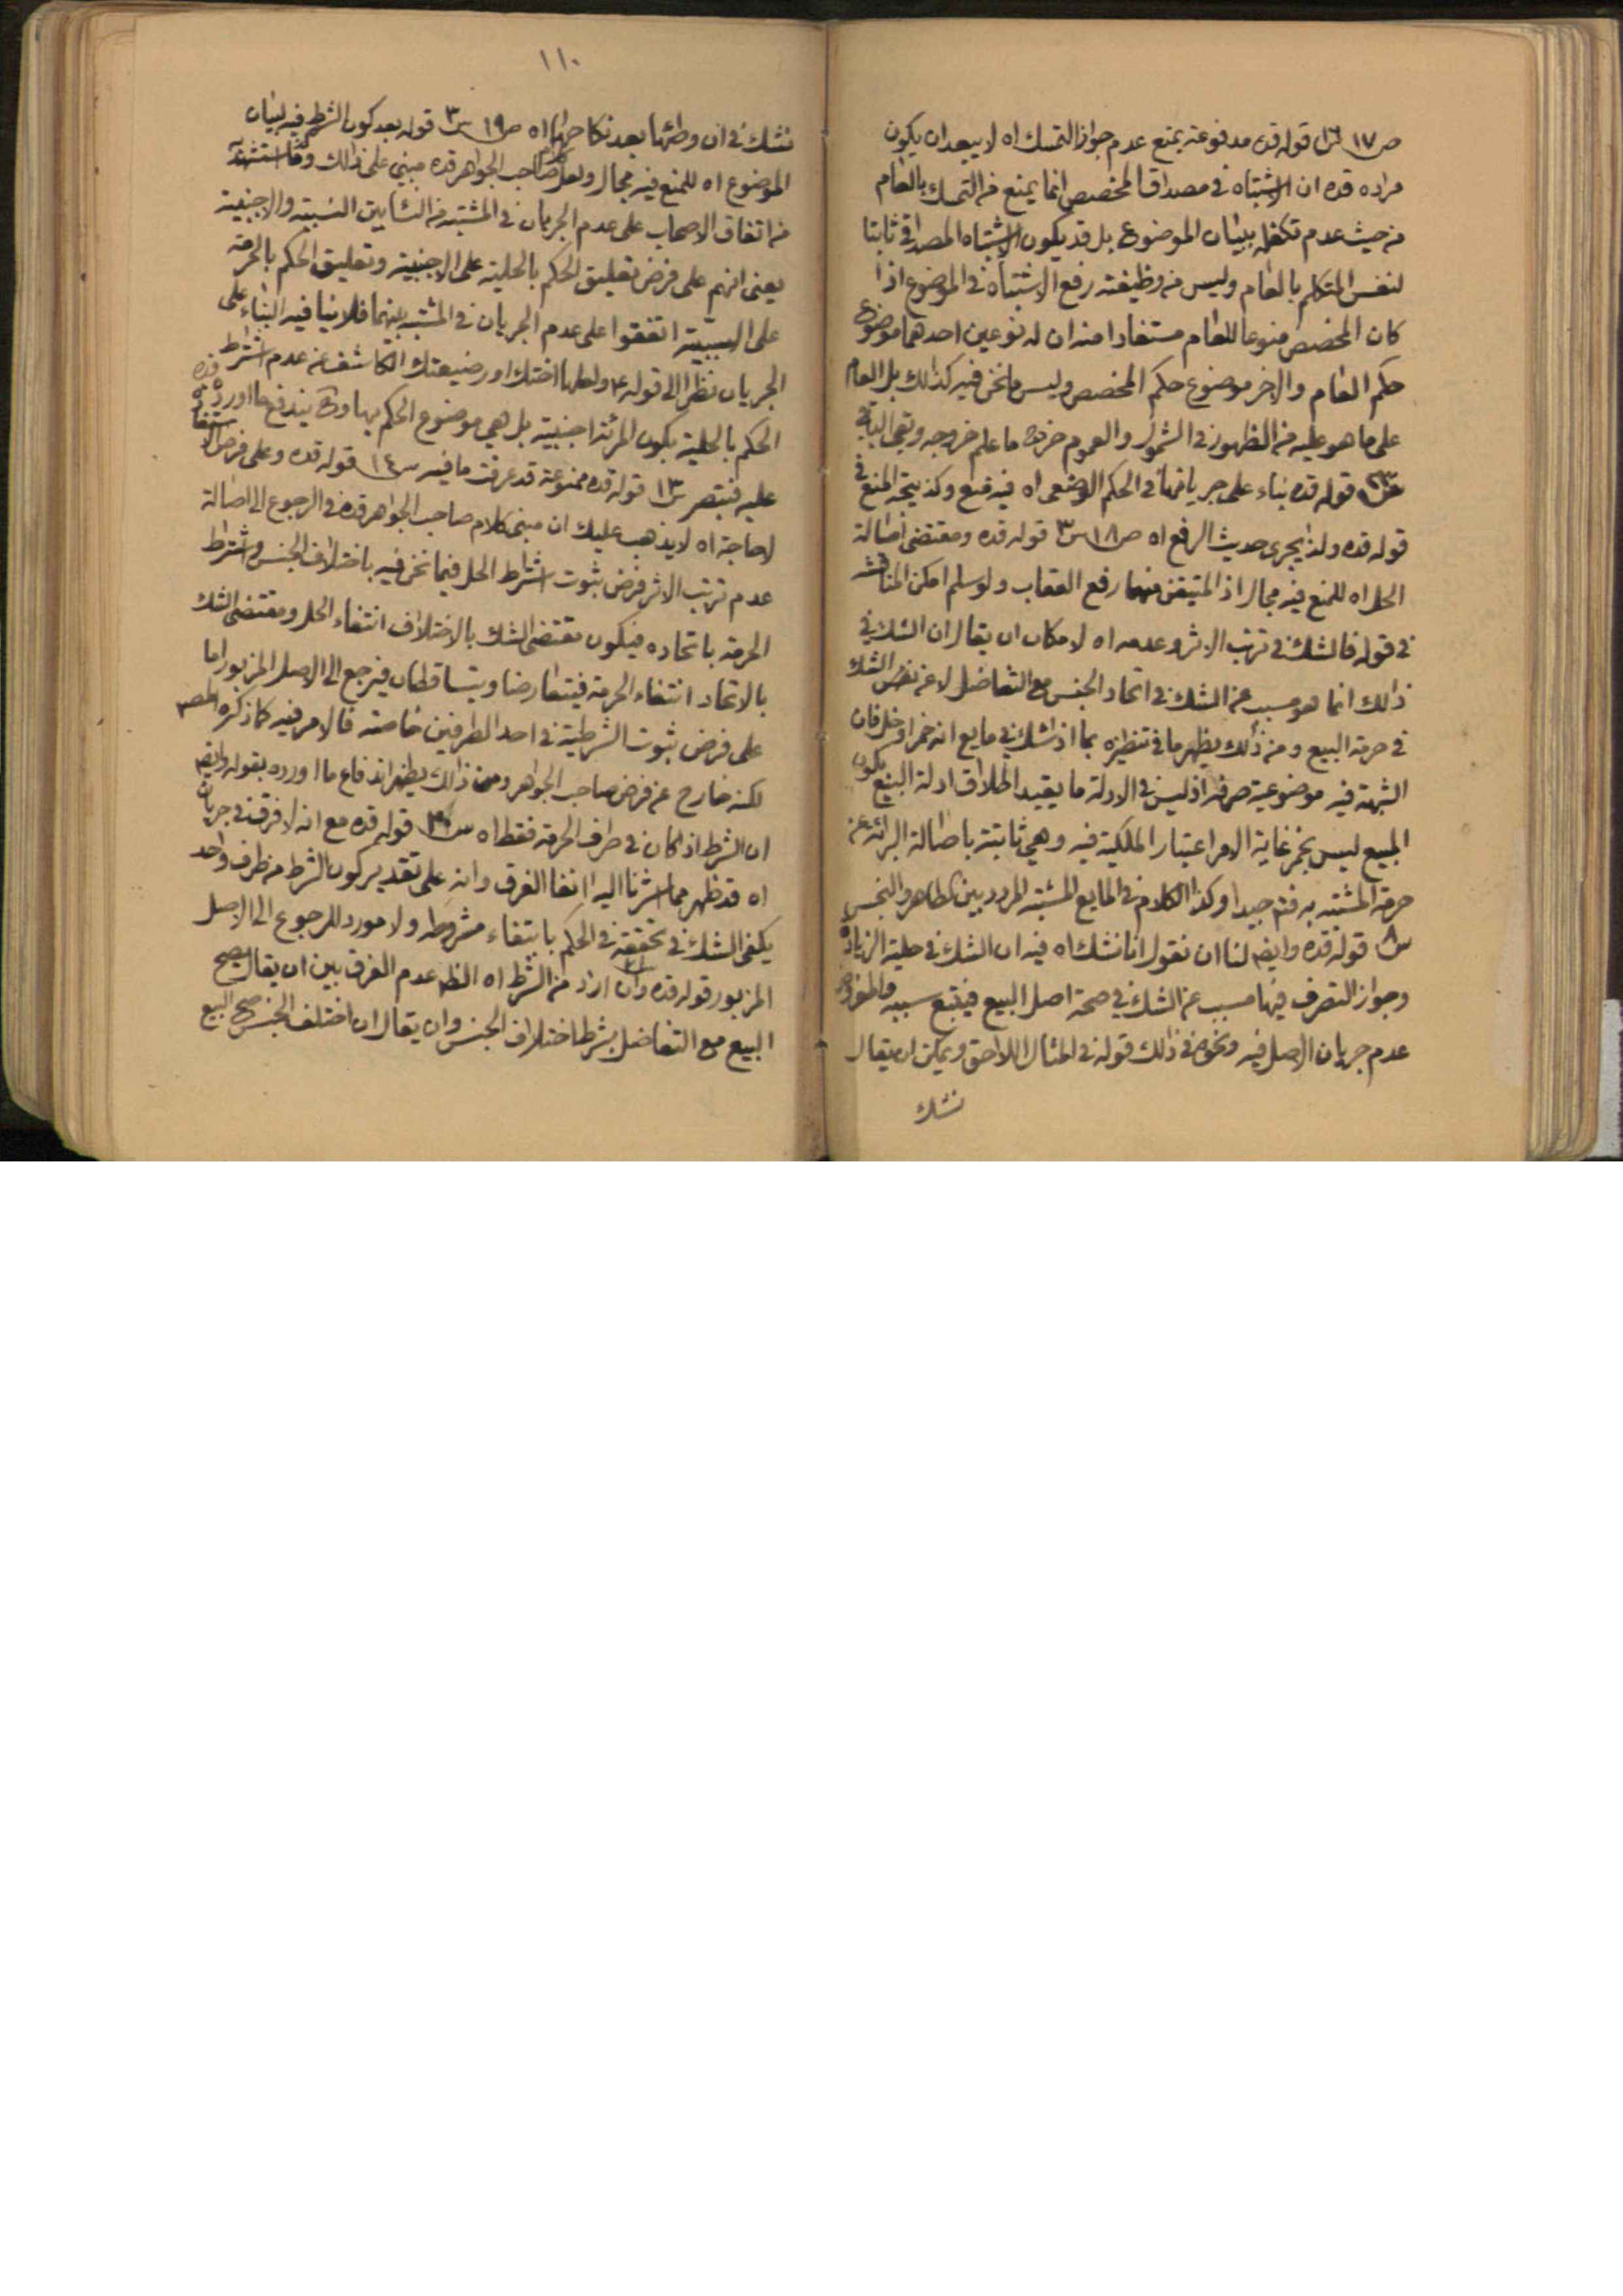 ص١٧ س١٦ قوله قده مدفوعة بمنع عدم جواز التمسك اه لا يبعد ان يكون
مراده قده ان الاشتباه في مصداق المخصص انما يمنع من التمسك بالعام
من حيث عدم تكفله ببيان الموضوع بل قد يكون الاشتباه المصداقي ثابتا
لنفس المتكلم بالعام وليس من وظيفته رفع الاشتباه في الموضوع اذا
كان المخصص منوعا للعام مستفادا منه ان له نوعين احدهما موضوع
حكم العام والاخر موضوع حكم المخصص وليس ما نحن فيه كذلك بل العام
على ما هو عليه من الظهور في الشمول والعموم خرج ما علم خروجه وبقى الباقي
قوله قده بناء على جريانها في الحكم الوضعى اه فيه منع وكذ يتجه المنع في
قوله قده ولذا يجرى حديث الرفع اه ص١٨ س٣ قوله قده ومقتضى اصالة
الحل اه للمنع فيه مجال اذ المتيقن منها رفع العقاب ولو سلم امكن المناقشة
في قوله فالشك في ترتب الاثر وعدمه اه لامكان ان يقال ان الشك في
ذالك انما هو مسبب عن الشك في اتحاد الجنس مع التفاضل لا عن نفس الشك
في حرمة البيع ومن ذلك يظهر ما في تنظيره بما اذ نشك في مايع انه خمر او خل فان
الشبهة فيه موضوعية صرفة اذ ليس في الادلة ما يقيد اطلاق ادلة البيع بكون
المبيع ليس بخمر غاية الامر اعتبار الملكية فيه وهي ثابتة باصالة البرائة عن
حرمة المشتبه به فتم جيدا وكذا الكلام في المايع المشتبه المردد بين الطاهر والنجس
س٨ قوله قده وايضا لنا ان نقول انا نشك اه فيه ان الشك في حلية الزيادة
وجواز التصرف فيها مسبب عن الشك في صحة اصل البيع فيتبع سببه والمفروض
عدم جريان الاصل فيه ونحوه في ذالك قوله في المثال اللاحق ويمكن ان يقال
نشك
١١٠
نشك في ان وطئها بعد نكاحها اه ص١٩ س٣ قوله بعد كون الشرط فيه لبيان
الموضوع اه للمنع فيه مجال ولعل كلام صاحب الجواهر قده مبني على ذالك وما استشهد به
من اتفاق الاصحاب على عدم الجريان في المشتبه من النساء بين النسبية والاجنبية
يعنى انهم على فرض تعليق الحكم بالحلية على الاجنبية وتعليق الحكم بالحرمة
على النسبية اتفقوا على عدم الجريان في المشتبه بينهما فلا ينافيه البناء على
الجريان نظرا الى قوله ع ولعلها اختك او رضيعتك الكاشف عن عدم اشتراط
الحكم بالحلية بكون المرئة اجنبية بل هي موضوع الحكم بها وح يندفع ما اورده قده
عليه فتبصر س١٣ قوله قده ممنوعة قد عرفت ما فيه س١٤ قوله قده وعلى فرض الاستفادة
لا حاجة اه لا يذهب عليك ان مبنى كلام صاحب الجواهر قده في الرجوع الى اصالة
عدم ترتب الاثر فرض ثبوت اشتراط الحل فيما نحن فيه باختلاف الجنس واشتراط
الحرمة باتحاده فيكون مقتضى الشك بالاختلاف انتفاء الحل ومقتضى الشك
بالاتحاد انتفاء الحرمة فيتعارضا ويتساقطان فيرجع الى الاصل المزبور اما
على فرض ثبوت الشرطية في احد الطرفين خاصة فالامر فيه كما ذكره المص
لكنه خارج عن فرض صاحب الجواهر ومن ذالك يظهر اندفاع ما اورده بقوله وايضا
ان الشرط اذ كان في طرف الحرمة فقط اه قوله قده مع انه لا فرق في جريان
اه قد ظهر مما اشرنا اليه انفا الفرق وانه على تقدير كون الشرط من طرف واحد
يكفى الشك في تحققه في الحكم بانتفاء مشروطه ولا مورد للرجوع الى الاصل
المزبور قوله قده وان اراد من الشرط اه الظ عدم الفرق بين ان يقال يصح
البيع مع التفاضل بشرط اختلاف الجنس وان يقال ان اختلف الجنس صح البيع